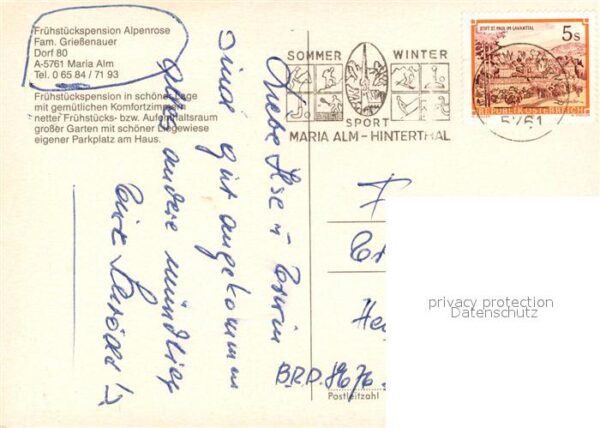 Frühstückspension Alpenrose
Fam. Grießenauer
Dorf 80
A-5761 Maria Alm
Tel. 0 65 84 / 71 93
Frühstückspension in schöner Lage
mit gemütlichen Komfortzimmern
netter Frühstücks- bzw. Aufenthaltsraum
großer Garten mit schöner Liegewiese
eigener Parkplatz am Haus.
SOMMER WINTER
SPORT
MARIA ALM - HINTERTHAL
STIFT ST. PAUL IM LAVANTTAL
5s
REPUBLIK ÖSTERREICH
5761
Liebe Ilse u
sind gut angekommen
alles andere mündlich
Eure
F
BRD. 8676
Postleitzahl
privacy protection
Datenschutz